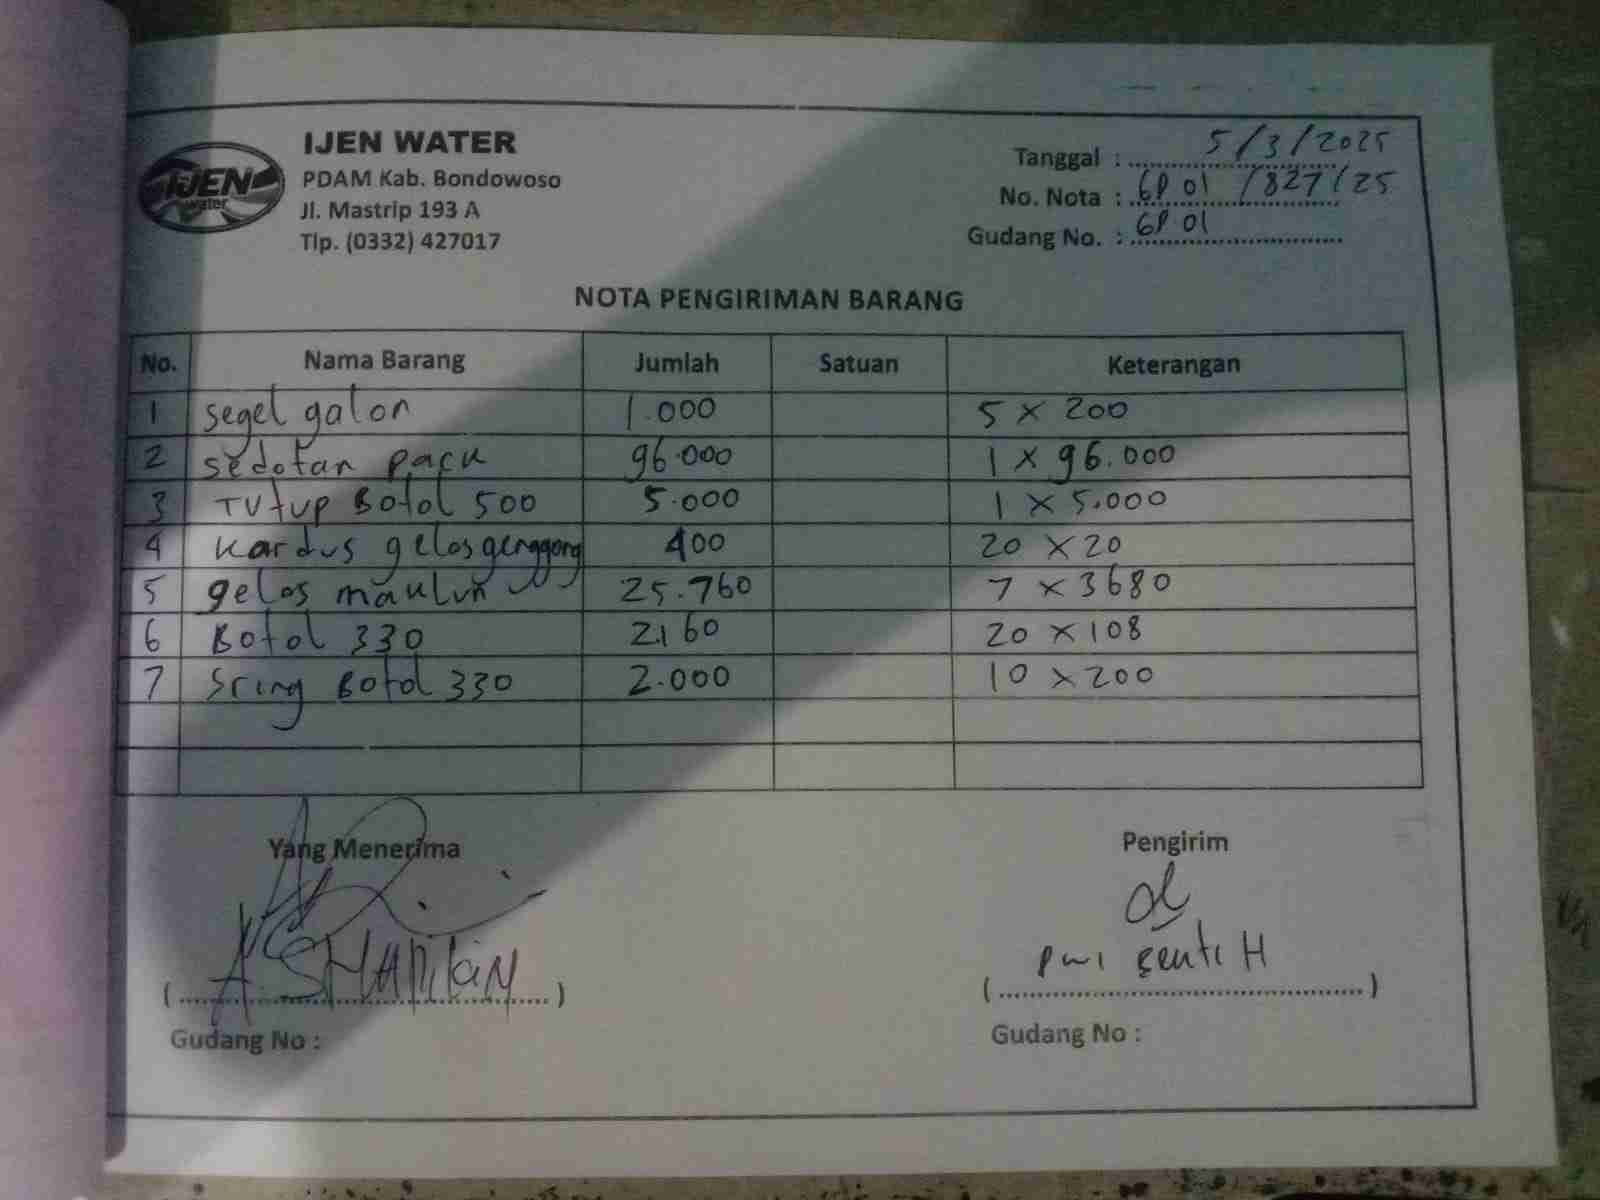 IJEN WATER
PDAM Kab. Bondowoso
Jl. Mastrip 193 A
Tlp. (0332) 427017
IJEN
water
Tanggal : 5/3/2025
No. Nota : GP 01 /827/25
Gudang No. : GP 01
NOTA PENGIRIMAN BARANG
No. Nama Barang Jumlah Satuan Keterangan
1 segel galon 1.000 5 x 200
2 sedotan pack 96.000 1 x 96.000
3 Tutup Botol 500 5.000 1 x 5.000
4 kardus gelas genggong 400 20 x 20
5 gelas maulun 25.760 7 x 3680
6 Botol 330 2.160 20 x 108
7 Sring Botol 330 2.000 10 x 200
Yang Menerima Pengirim
( ) ( Dwi H )
Gudang No : Gudang No :